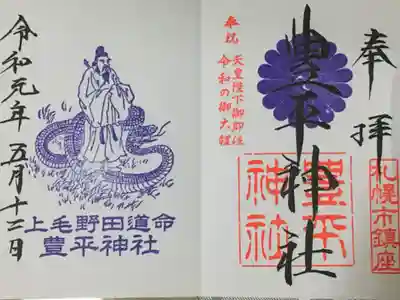 奉拝
豊平神社
豊平神社
札幌市鎮座
奉祝
天皇陛下御即位
令和の御大礼
令和元年五月十二日
上毛野田道命
豊平神社